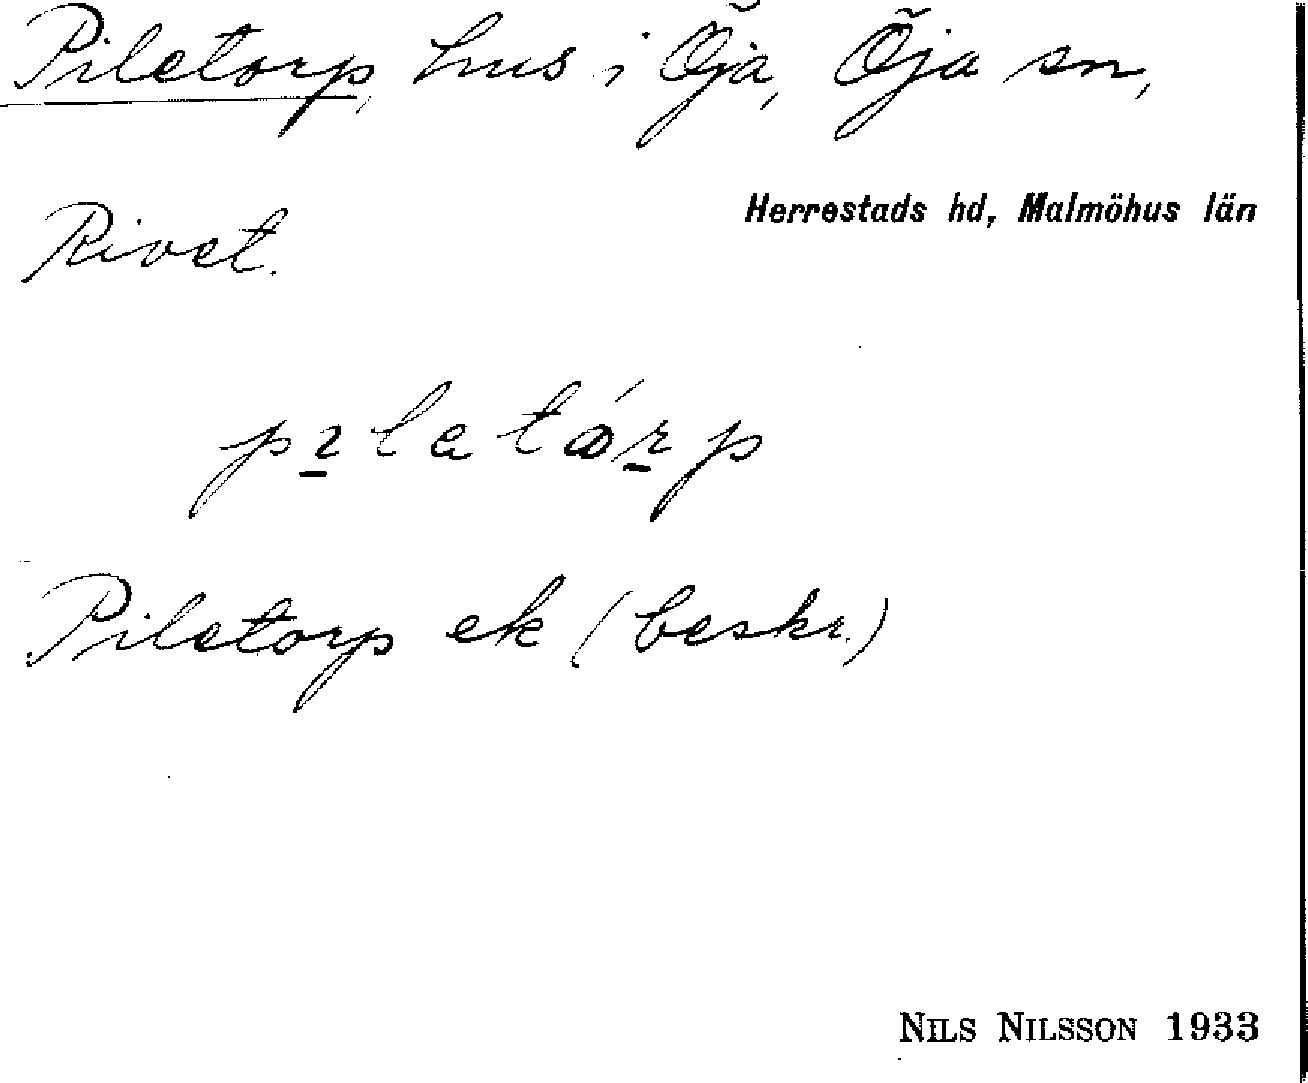 Piletorp, hus i Öja, Öja sn,
Herrestads hd, Malmöhus län
Rivet.
Piletorp ek (beskr.)
NILS NILSSON 1933